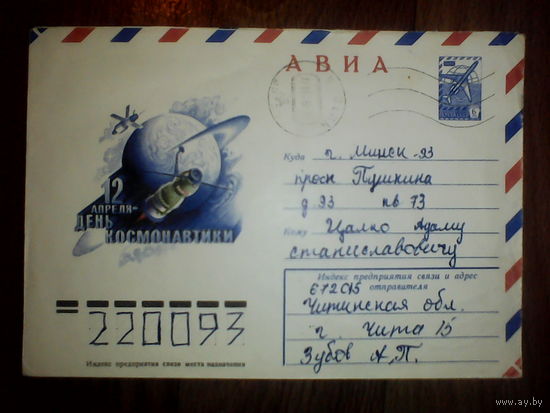 АВИА
12
АПРЕЛЯ-
ДЕНЬ
КОСМОНАВТИКИ
Куда г. Минск-93
просп Пушкина
д 93 кв 73
Кому Цалко Адаму
Станиславовичу
Индекс предприятия связи и адрес
отправителя
672015
Читинская обл.
г. Чита 15
Зубов А.П.
220093
Индекс предприятия связи места назначения
www.ay.by